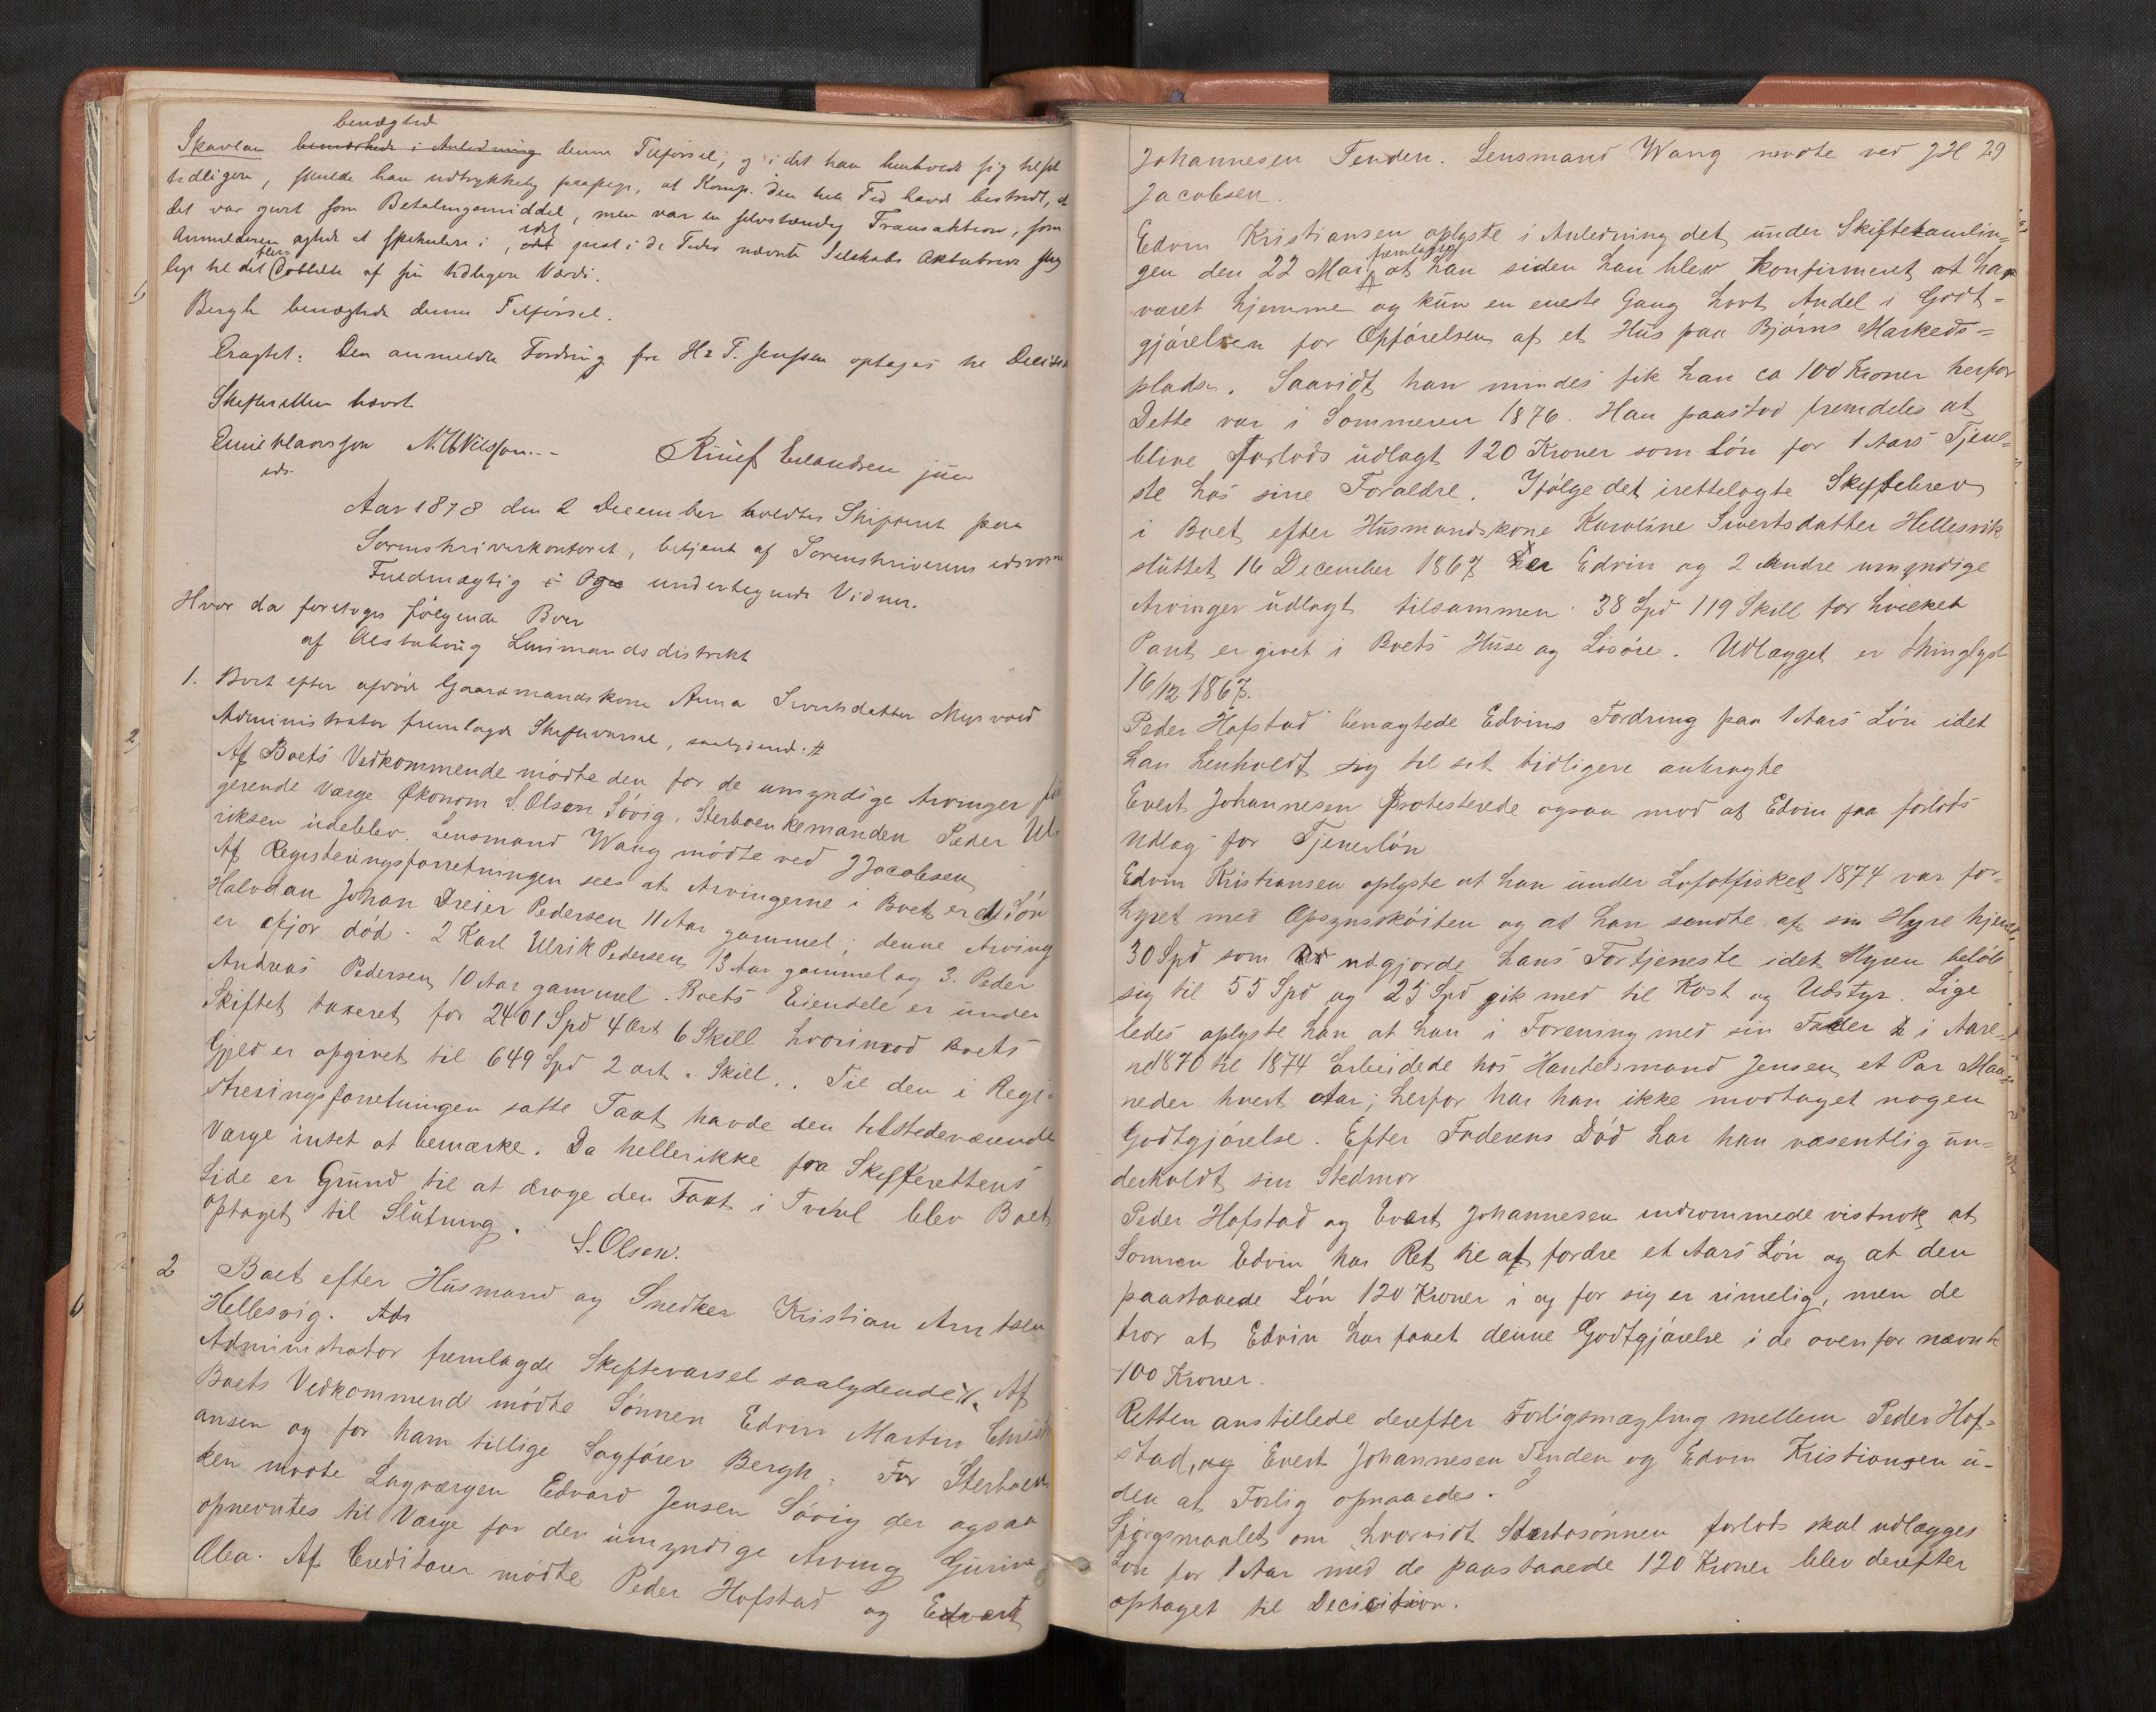 benægted
Skavlan bemærkede i Anledning denne Tilførsel, og i det han henholdt sig til sit
tidligere, skulde han udtrykkelig paapege, at Komp. den hele Tid havde bestridt, at
det var givet som Betalingsmiddel, men var en selvstændig Transaktion, som
Anmelderen agtede at spekulere i, idet just i de Tider nævnte Selskabs Aktiebreve
til det flere Dobbelte af sin tidligere Værdi.
Bergh benægtede denne Tilførsel.
Eragtet: Den anmeldte Fordring fra H. T. Jenssen optages til Decision
Skifteretten hævet
N. H. Nilsson
Aar 1878 den 2 December holdtes Skifteret paa
Sorenskriverkontoret, betjent af Sorenskriverens edsvorne
Fuldmægtig i Ogv undertegnede Vidner.
Hvor da foretoges følgende Boer
af Alstahoug Lensmandsdistrikt
1. Boet efter afdøde Gaardmandskone Anna Sivertsdatter Myrvold
Administrator fremlagde Skiftevarsel, saalydende: #
Af Boets Vedkommende mødte den for de umyndige Arvinger fun-
gerende Værge Økonom S. Olsen Søvig. Sterboenkemanden Peder Ul-
riksen udeblev. Lensmand Wang mødte ved J Jacobsen
Af Registeringsforretningen sees at Arvingerne i Boet er 1) Søn
Halvdan Johan Dreier Pedersen 11 Aar gammel; denne Arving
er ifjor død. 2 Karl Ulrik Pedersen 13 Aar gammel og 3. Peder
Andreas Pedersen 10 Aar gammel. Boets Eiendele er under
Skiftet taxeret for 2401 Spd 4 Ort 6 Skill hvorimod Boets
Gjeld er opgivet til 649 Spd 2 ort " Skill. Til den i Regi-
streringsforretningen satte Taxt havde den tilstedeværende
Værge intet at bemærke. Da heller ikke fra Skifterettens
Side er Grund til at drage den Taxt i Tvivl blev Boet
optaget til Slutning.
S. Olsen.
2 Boet efter Husmand og Snedker Kristian Arntsen
Hellesvig. Adr
Administrator fremlagde Skiftevarsel saalydende #. Af
Boets Vedkommende mødte Sønnen Edvin Martin Christi-
ansen og for ham tillige Sagfører Bergh. For Sterboen-
ken mødte Lagværgen Edvard Jensen Søvig der ogsaa
opnevntes til Værge for den umyndige Arving Gurine
Olea. Af Creditorer mødte Peder Hofstad og Edvart
29
Johannesen Tenden. Lensmand Wang mødte ved J H
Jacobsen.
Edvin Kristiansen oplyste i Anledning det under Skiftesamlin-
gen den 22 Mai fremlagte at han siden han blev konfirmert at har
været hjemme og kun en eneste Gang havt Andel i Godt-
gjørelsen for Opførelsen af et Hus paa Bjørns Markeds-
plads. Saavidt han mindes fik han ca 100 Kroner herfor
Dette var i Sommeren 1876. Han paastod fremdeles at
blive forlods udlagt 120 Kroner som Løn for 1 Aars Tjene-
ste hos sine Foraldre. Ifølge det irettelagte Skiftebrev
i Boet efter Husmandskone Karoline Sivertsdatter Hellesvik
sluttet 16 December 1867 er Edvin og 2 Andre umyndige
Arvinger udlagt tilsammen 38 Spd 119 Skill for hvilket
Pant er givet i Boets Huse og Løsøre. Udlægget er thinglyst
16/12 1867.
Peder Hofstad benægtede Edvins Fordring paa 1 Aars Løn idet
han henholdt sig til sit tidligere anbragte
Evert Johannesen Protesterede ogsaa mod at Edvin faa forlods
Udlæg for Tjenerløn
Edvin Kristiansen oplyste at han under Lofotfisket 1874 var for-
hyret med Opsynsskøiten og at han sendte af sin Hyre hjem
30 Spd som udgjorde hans Fortjeneste idet Hyren beløb
sig til 55 Spd og 25 Spd gik med til Kost og Udstyr. Lige
ledes oplyste han at han i Forening med sin Fader i Aare-
ne 1870 til 1874 arbeidede hos Handelsmand Jensen et Par Maa-
neder hvert Aar; herfor har han ikke modtaget nogen
Godtgjørelse. Efter Faderens Død har han væsentlig un-
derholdt sin Stedmor
Peder Hofstad og Evert Johannesen indrømmede vistnok at
Sønnen Edvin har Ret til at fordre et Aars Løn og at den
paastaaede Løn 120 Kroner i og for sig er rimelig, men de
tror at Edvin har faaet denne Godtgjørelse i de ovenfor nævnte
100 Kroner.
Retten anstillede derefter Forligsmægling mellem Peder Hof-
stad, og Evert Johannesen Tenden og Edvin Kristiansen u-
den at Forlig opnaaedes.
Spørgsmaalet om hvorvidt Sterbosønnen forlods skal udlægges
Løn for 1 Aar med de paastaaede 120 Kroner blev derefter
optaget til Decicition.